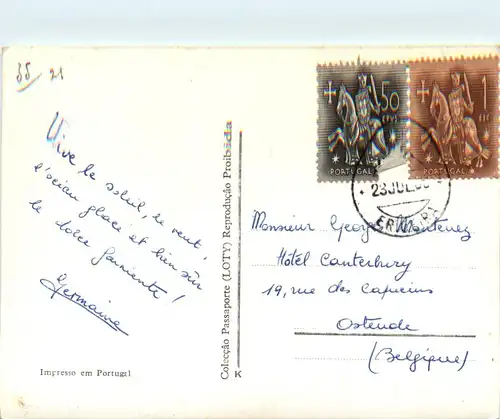 35/21
Vive le soleil, le vent,
l'océan glacé et bien sûr
le dolce farniente !
Germaine
Impresso em Portugal
Colecção Passaporte (LOTY) Reprodução Proibida
K
50
CTVS
PORTUGAL
1
ESC
PORTUGAL
23 JUL
Monsieur Georges Montenez
Hôtel Canterbury
19, rue des Capucins
Ostende
(Belgique)